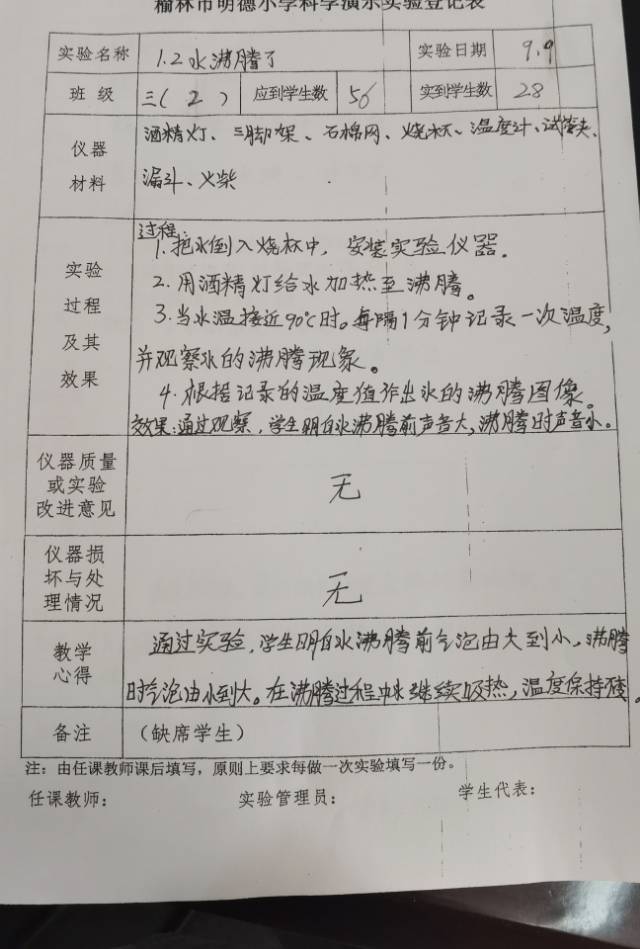 榆林市明德小学科学演示实验登记表
实验名称 1.2水沸腾了 实验日期 9.9
班 级 三(2) 应到学生数 56 实到学生数 28
仪器 材料 酒精灯、三脚架、石棉网、烧杯、温度计、试管夹、
漏斗、火柴
实验 过程 及其 效果
过程:
1.把水倒入烧杯中，安装实验仪器.
2.用酒精灯给水加热至沸腾。
3.当水温接近90℃时。每隔1分钟记录一次温度,
并观察水的沸腾现象。
4.根据记录的温度值作出水的沸腾图像。
效果:通过观察，学生明白水沸腾前声音大,沸腾时声音小。
仪器质量
或实验
改进意见
无
仪器损
坏与处
理情况
无
教学
心得
通过实验,学生明白水沸腾前气泡由大到小，沸腾
时气泡由小到大。在沸腾过程中水继续吸热，温度保持不变。
备注 （缺席学生）
注：由任课教师课后填写，原则上要求每做一次实验填写一份。
任课教师： 实验管理员： 学生代表：